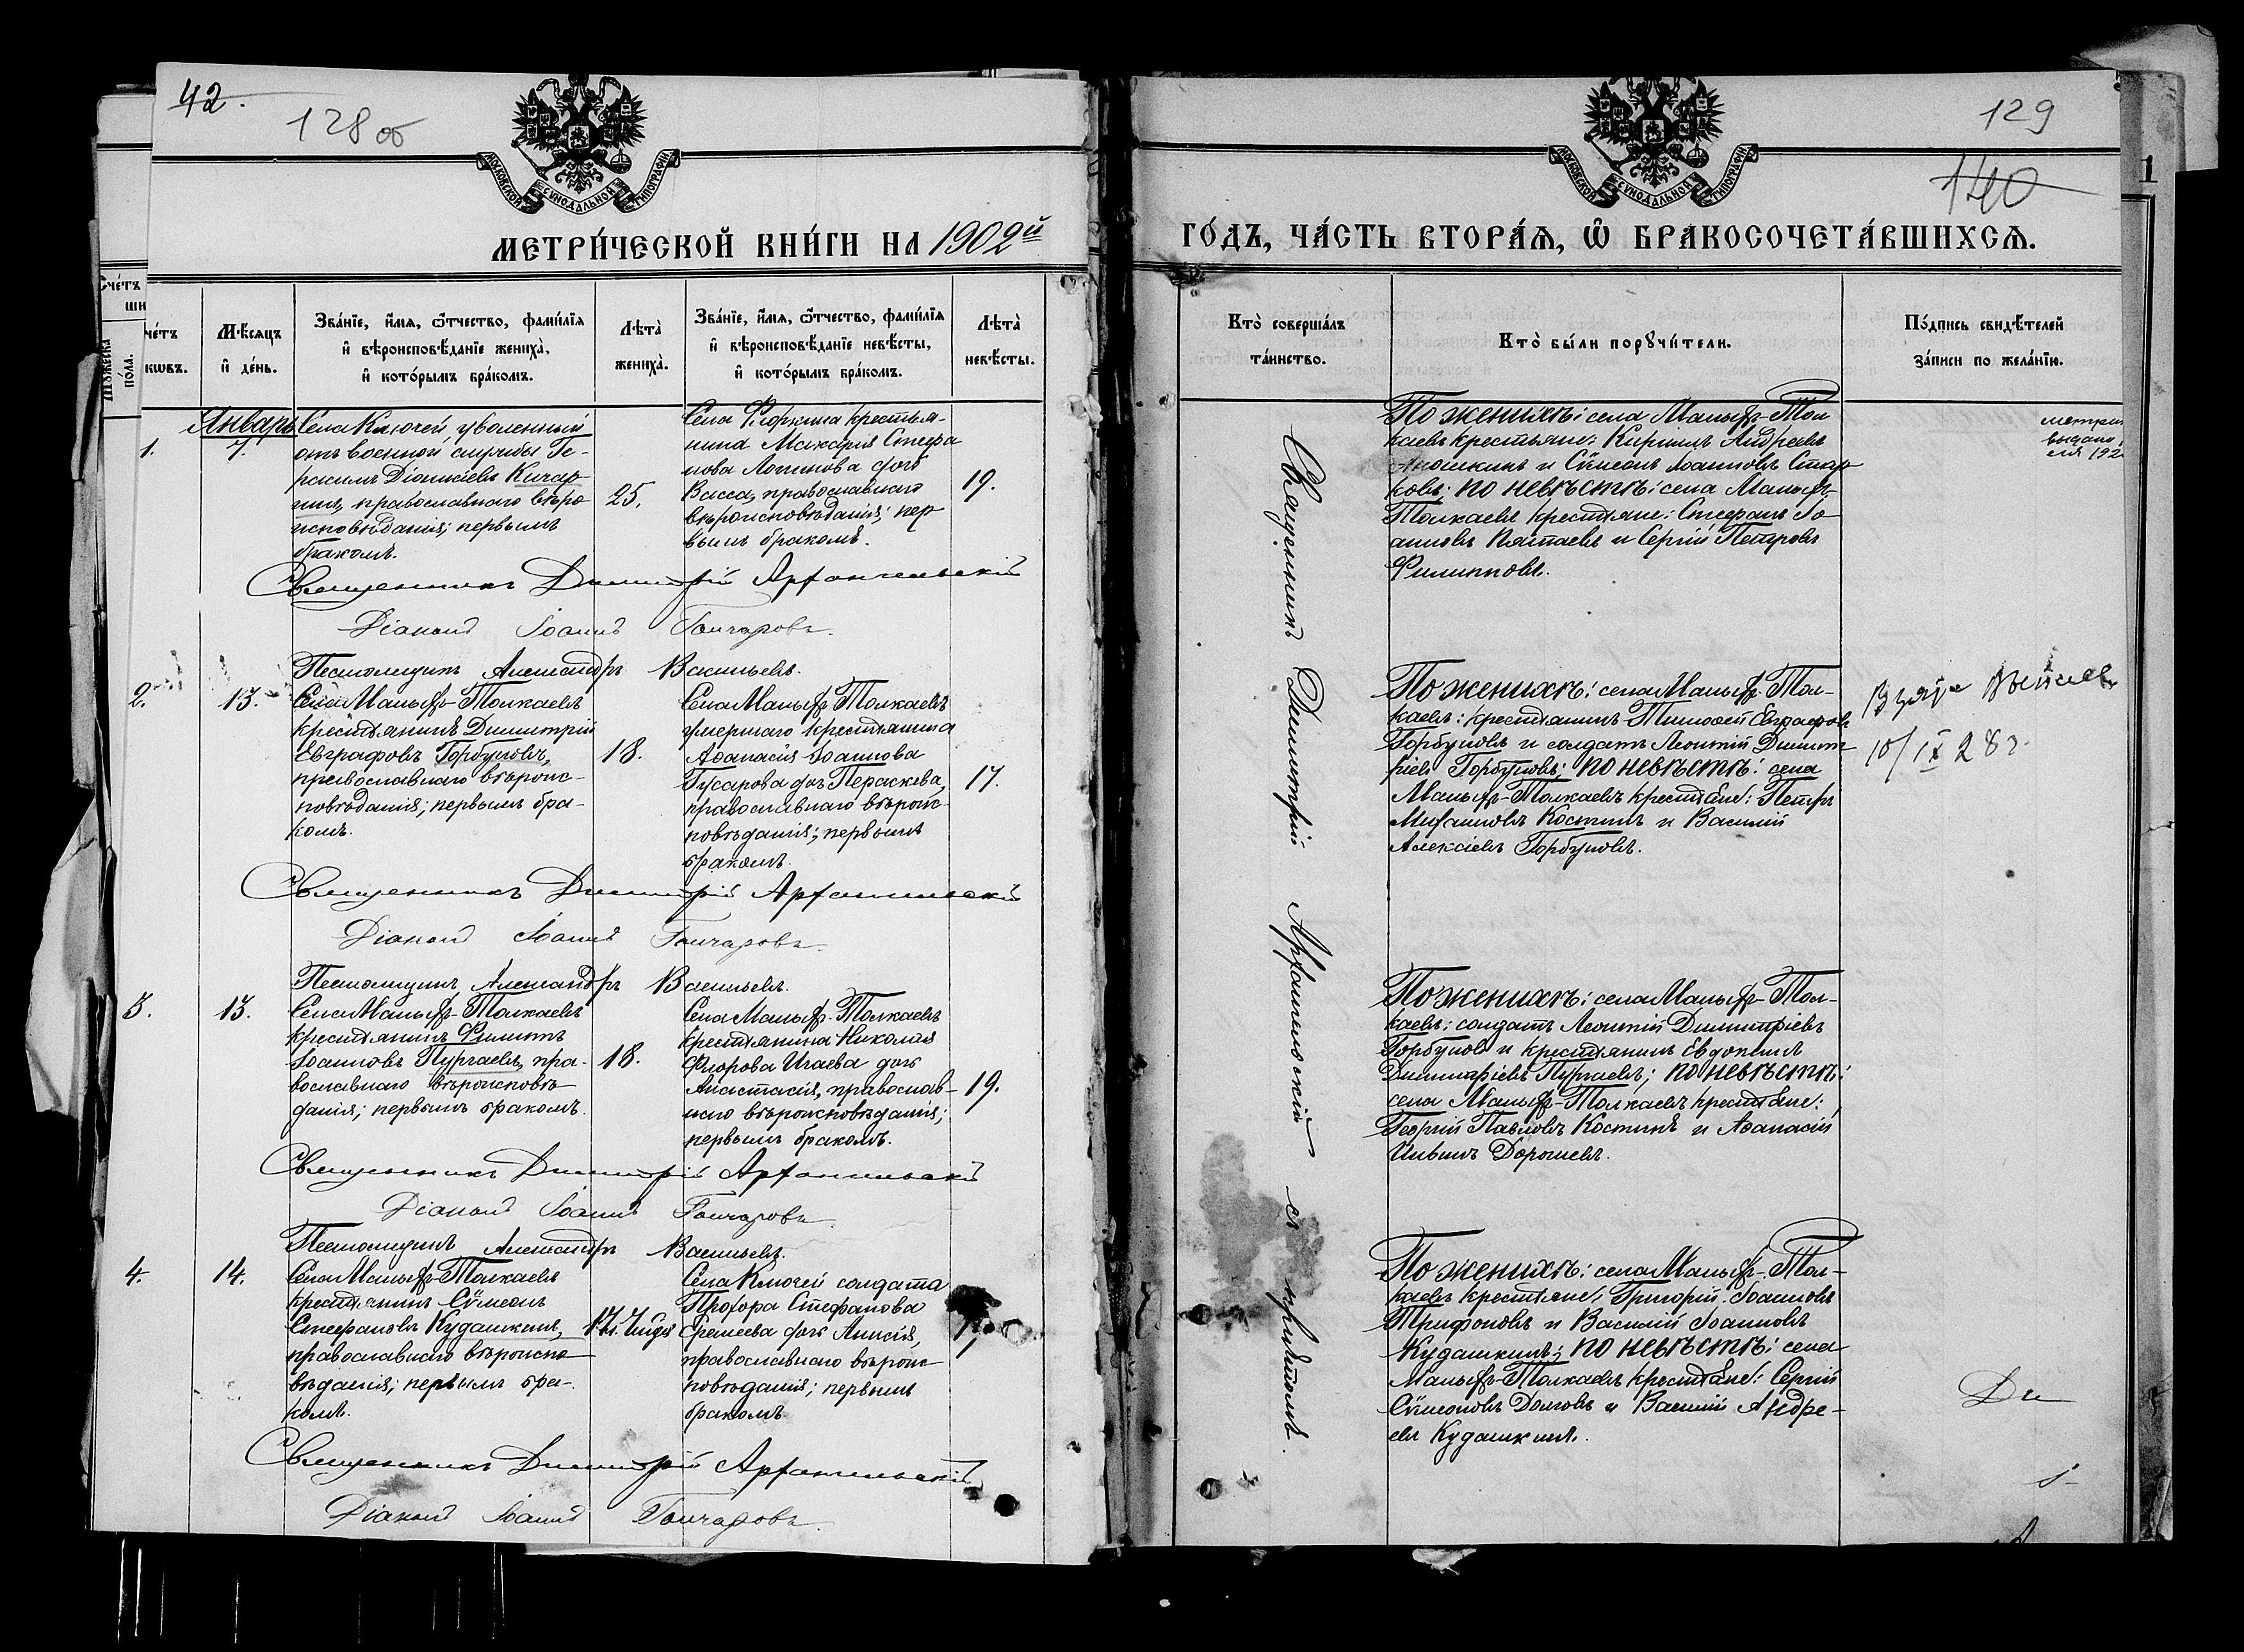 42.
128 об
МОСКОВСКОЙ СѴНОДАЛЬНОЙ ТИПОГРАФІИ
МЕТРИ́ЧЕСКОЙ КНИ́ГИ НА 1902й
Сче́тъ
По́ла.
Мѣ́сяцъ
и҆ де́нь.
Зва́нїе, и҆́мѧ, ѻ҆́тчество, фами́лїѧ
и҆ вѣроисповѣ́данїе жениха̀,
и҆ кото́рымъ бра́комъ.
Лѣ́та
жениха̀.
Зва́нїе, и҆́мѧ, ѻ҆́тчество, фами́лїѧ
и҆ вѣроисповѣ́данїе невѣ́сты,
и҆ кото́рымъ бра́комъ.
Лѣ́та
невѣ́сты.
Январь
1.
7.
Села Ключей уволенный
отъ военной службы Ге-
расимъ Діомидовъ Кичар-
православнаго вѣро-
исповѣданія; первымъ
бракомъ.
25.
Села крестья-
нина Макарія Стефа
нова Логинова дочь
Васса, православнаго
вѣроисповѣданія; пер
вымъ бракомъ.
19.
Священникъ Димитрій Архангельскій
Діаконъ Іоаннъ Гончаровъ.
Псаломщикъ Александръ Васильевъ.
2.
13.
Села Малыхъ-Толкаевъ
крестьянинъ Димитрій
Евграфовъ Горбуновъ,
православнаго вѣроис-
повѣданія; первымъ бра-
комъ.
18.
Села Малыхъ Толкаевъ
умершаго крестьянина
Аѳанасія Іоаннова
Гусарова дочь Параскева,
православнаго вѣроис-
повѣданія; первымъ
бракомъ.
17.
Священникъ Димитрій Архангельскій
Діаконъ Іоаннъ Гончаровъ.
Псаломщикъ Александръ Васильевъ.
3.
13.
Села Малыхъ-Толкаевъ
крестьянинъ Филиппъ
Іоанновъ Пургаевъ, пра-
вославнаго вѣроисповѣ-
данія; первымъ бракомъ.
18.
Села Малыхъ-Толкаевъ
крестьянина Николая
Флорова Игаева дочь
Анастасія, православ-
наго вѣроисповѣданія;
первымъ бракомъ.
19.
Священникъ Димитрій Архангельскій
Діаконъ Іоаннъ Гончаровъ
Псаломщикъ Александръ Васильевъ.
4.
14.
Села Малыхъ-Толкаевъ
крестьянинъ Сѷмеонъ
Стефановъ Кудашкинъ,
православнаго вѣроиспо-
вѣданія; первымъ бра-
комъ.
Села Ключей солдата
Прохора Стефанова
Еремеева дочь Анисія,
православнаго вѣроис-
повѣданія; первымъ
бракомъ.
Священникъ Димитрій Архангельскій
Діаконъ Іоаннъ Гончаровъ.
129
140
МОСКОВСКОЙ СѴНОДАЛЬНОЙ ТИПОГРАФІИ
ГО́ДЪ, ЧА́СТЬ ВТОРА́Ѧ, Ѡ҆ БРАКОСОЧЕТА́ВШИХСѦ.
Кто̀ соверша́лъ
та́инство.
Кто̀ бы́ли порꙋчи́тели.
По́дпись свидѣ́телей
за́писи по жела́нїю.
Священникъ Димитрій Архангельскій съ причтомъ.
По женихѣ: села Малыхъ-Тол
каевъ крестьяне: Кириллъ Андреевъ
и Сѷмеонъ Іоанновъ Стар
ковъ; по невѣстѣ: села Малыхъ-
Толкаевъ крестьяне: Стефанъ Іо
анновъ Пятаевъ и Сергій Петровъ
Филипповъ.
По женихѣ: села Малыхъ-Тол-
каевъ: крестьянинъ Тимоѳей Евграфовъ
Горбуновъ и солдатъ Леонтій Димит
ріевъ Горбуновъ; по невѣстѣ: села
Малыхъ-Толкаевъ крестьяне: Петръ
Костинъ и Василій
Алексіевъ Горбуновъ.
10/IX 28 г.
По женихѣ: села Малыхъ-Тол-
каевъ: солдатъ Леонтій Димитріевъ
Горбуновъ и крестьянинъ Евдокимъ
Димитріевъ Пургаевъ; по невѣстѣ:
села Малыхъ-Толкаевъ крестьяне:
Георгій Павловъ Костинъ и Аѳанасій
Ильинъ Дорошевъ.
По женихѣ: села Малыхъ-Тол-
каевъ крестьяне: Григорій Іоанновъ
Трифоновъ и Василій Іоанновъ
Кудашкинъ; по невѣстѣ: села
Малыхъ-Толкаевъ крестьяне: Сергій
Сѷмеоновъ Долговъ и Василій Андре-
евъ Кудашкинъ.